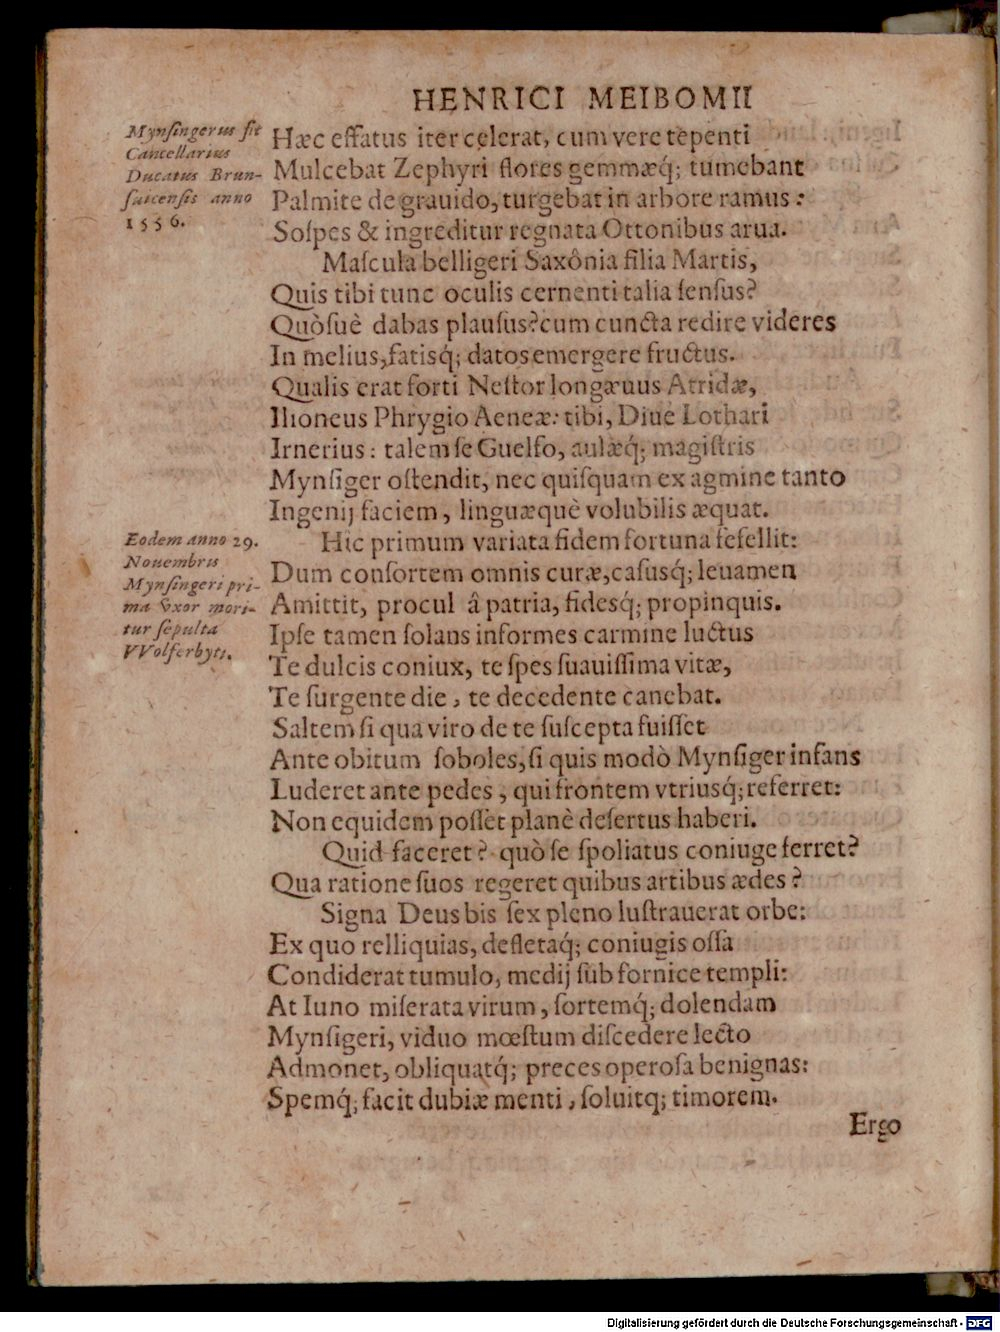 HENRICI MEIBOMII
Mynſingerus fit
Cancellarius
Ducatus Brun-
ſuicenſis anno
1556.
Hæc effatus iter celerat, cum vere tepenti
Mulcebat Zephyri flores gemmæq́; tumebant
Palmite de grauido, turgebat in arbore ramus:
Soſpes & ingreditur regnata Ottonibus arua.
Maſcula belligeri Saxônia filia Martis,
Quis tibi tunc oculis cernenti talia ſenſus?
Quòſuè dabas plauſus? cum cuncta redire videres
In melius, fatisq́; datos emergere fructus.
Qualis erat forti Neſtor longæuus Atridæ,
Ilioneus Phrygio Aeneæ: tibi, Diue Lothari
Irnerius: talem ſe Guelfo, aulæq́; magiſtris
Mynſiger oſtendit, nec quiſquam ex agmine tanto
Ingenij faciem, linguæquè volubilis æquat.
Eodem anno 29.
Nouembris
Mynſingeri pri-
ma vxor mori-
tur ſepulta
VVolferbyti.
Hic primum variata fidem fortuna fefellit:
Dum conſortem omnis curæ, caſusq́; leuamen
Amittit, procul â patria, fidesq́; propinquis.
Ipſe tamen ſolans informes carmine luctus
Te dulcis coniux, te ſpes ſuauiſſima vitæ,
Te ſurgente die, te decedente canebat.
Saltem ſi qua viro de te ſuſcepta fuiſſet
Ante obitum ſoboles, ſi quis modò Mynſiger infans
Luderet ante pedes, qui frontem vtriusq́; referret:
Non equidem poſſet planè deſertus haberi.
Quid faceret? quò ſe ſpoliatus coniuge ferret?
Qua ratione ſuos regeret quibus artibus ædes?
Signa Deus bis ſex pleno luſtrauerat orbe:
Ex quo relliquias, defletaq́; coniugis oſſa
Condiderat tumulo, medij ſub fornice templi:
At Iuno miſerata virum, ſortemq́; dolendam
Mynſigeri, viduo mœſtum diſcedere lecto
Admonet, obliquatq́; preces operoſa benignas:
Spemq́; facit dubiæ menti, ſoluitq; timorem.
Ergo
Digitalisierung gefördert durch die Deutsche Forschungsgemeinschaft - DFG